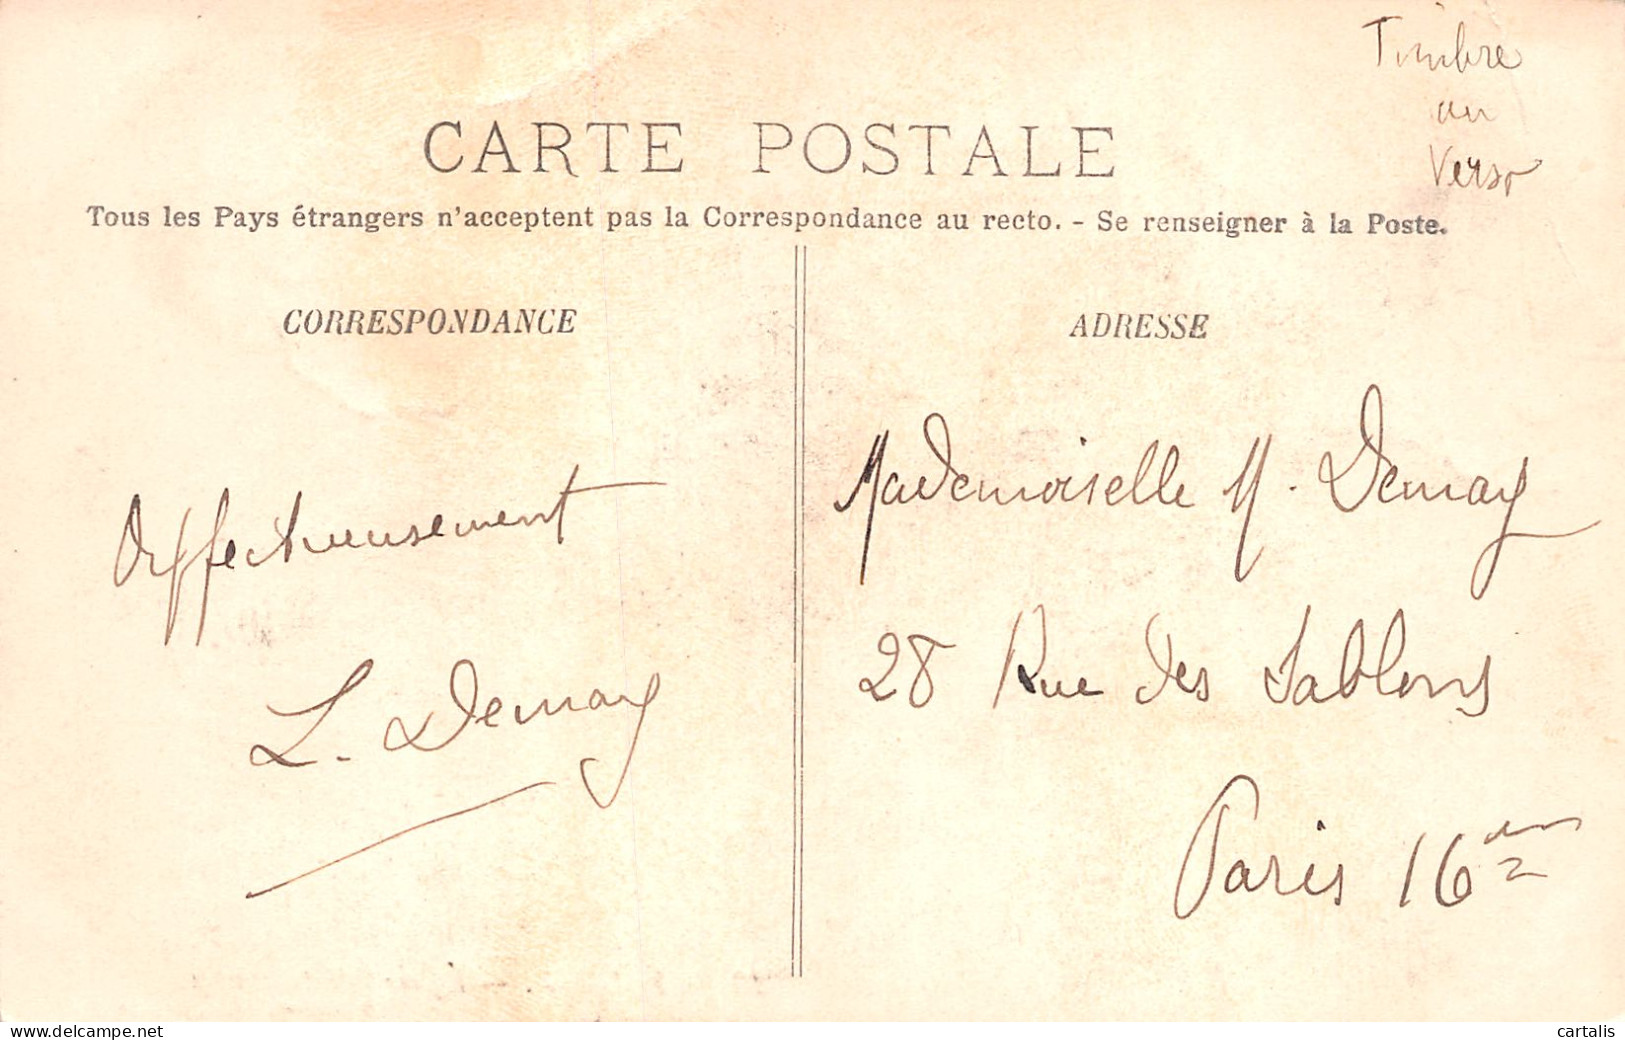 Timbre
au
Verso
CARTE POSTALE
Tous les Pays étrangers n'acceptent pas la Correspondance au recto. - Se renseigner à la Poste.
CORRESPONDANCE
Affectueusement
L. Demay
ADRESSE
Mademoiselle M. Demay
28 Rue des Sablons
Paris 16ème
www.delcampe.net
cartalis